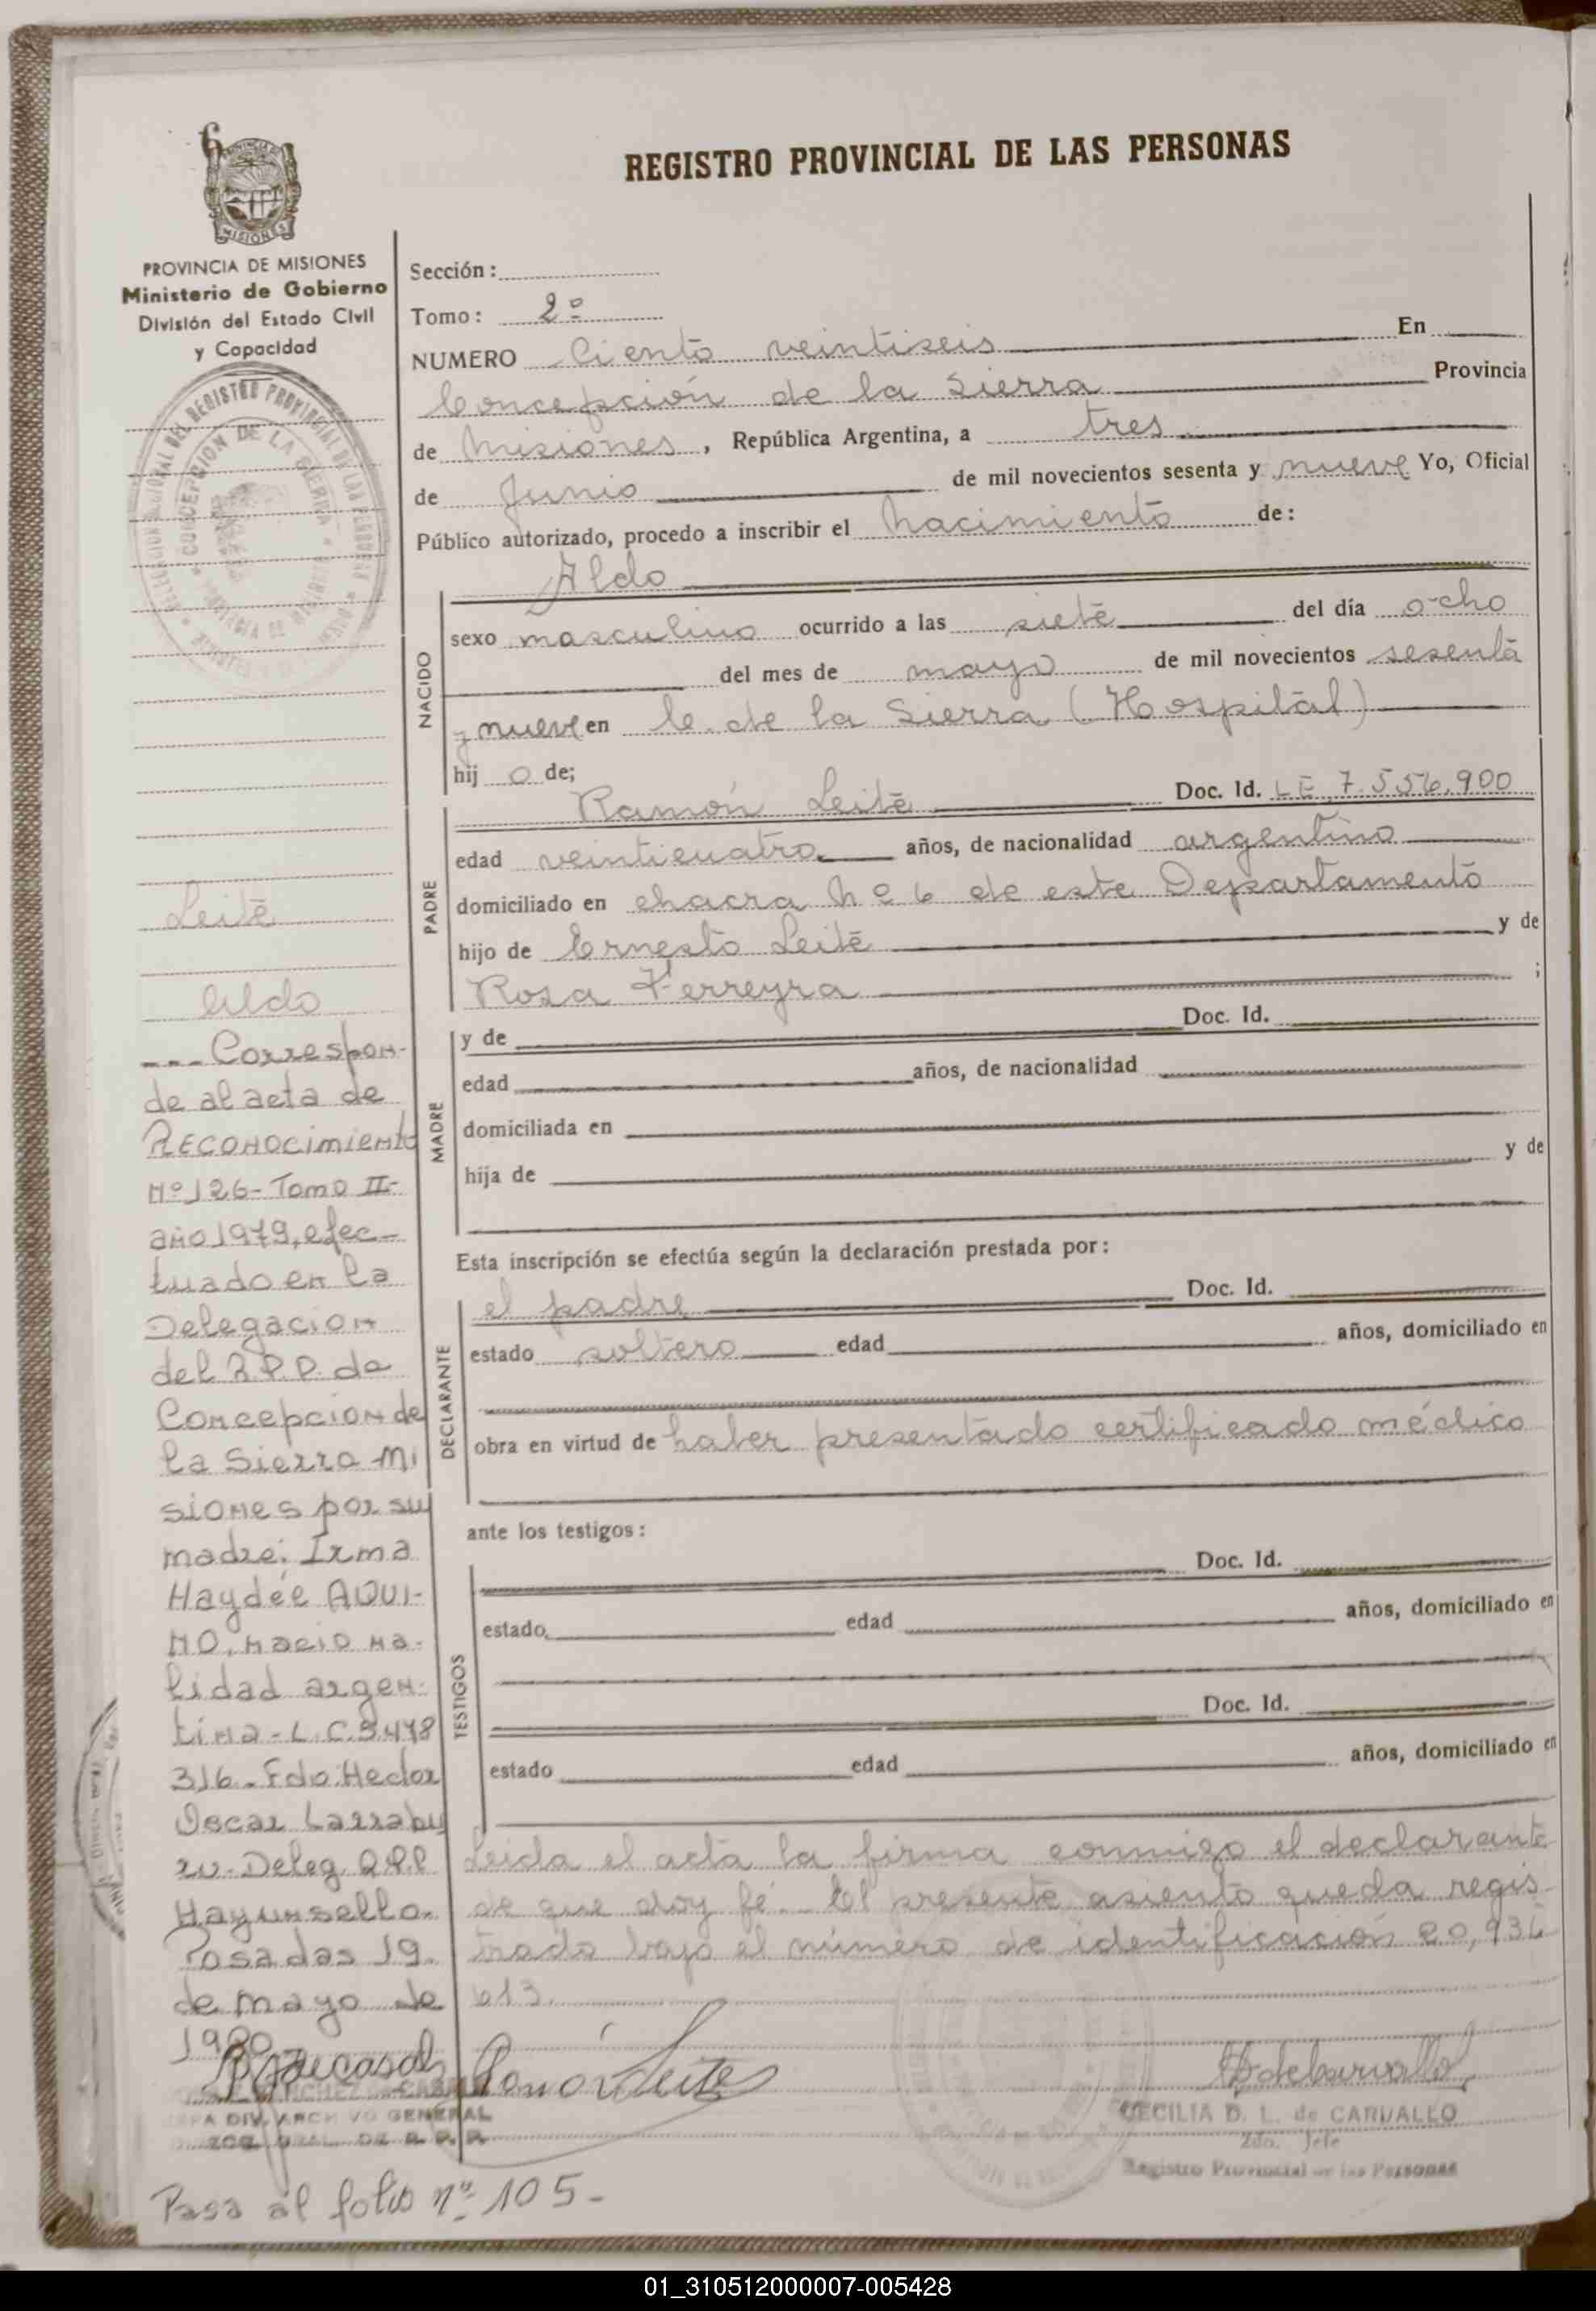 6
REGISTRO PROVINCIAL DE LAS PERSONAS
MISIONES
PROVINCIA DE MISIONES
Ministerio de Gobierno
División del Estado Civil
y Capacidad
Sección:
Tomo: 2º
NUMERO Ciento veintiseis En
Concepción de la Sierra Provincia
de Misiones, República Argentina, a tres
de Junio de mil novecientos sesenta y nueve Yo, Oficial
Público autorizado, procedo a inscribir el nacimiento de:
NACIDO
Aldo
sexo masculino ocurrido a las siete del día ocho
del mes de mayo de mil novecientos sesenta
y nueve en C. de la Sierra (Hospital)
hij o de;
PADRE
Ramón Leite Doc. Id. LE 7.556.900
edad veinticuatro años, de nacionalidad argentino
domiciliado en chacra nº 6 de este Departamento
hijo de Ernesto Leite y de
Rosa Ferreyra ;
MADRE
y de Doc. Id.
edad años, de nacionalidad
domiciliada en
hija de y de
Esta inscripción se efectúa según la declaración prestada por:
DECLARANTE
el padre Doc. Id.
estado soltero edad años, domiciliado en
obra en virtud de haber presentado certificado médico
ante los testigos:
TESTIGOS
Doc. Id.
estado edad años, domiciliado en
Doc. Id.
estado edad años, domiciliado en
Leida el acta la firma conmigo el declarante
de que doy fé.- El presente asiento queda regis
trado bajo el número de identificación 20,936
613.
Leite
Aldo
--- Correspon-
de al acta de
RECONOCIMIENTO
Nº 126- Tomo II-
año 1979, efec-
tuado en la
Delegacion
del R.P.P. de
Concepcion de
la Sierra Mi
siones por su
madre: Irma
Haydée AQUI-
NO, nacio na-
lidad argen-
tina - L.C. 5.478
316. Fdo: Hector
Oscar Larrabu
ru- Deleg. R.P.P.
Hay un sello.
Posadas 19.
de mayo de
1980
DIV. ARCHIVO GENERAL
Ramón Leite
CECILIA D. L. de CARVALLO
2do. Jefe
Registro Provincial de las Personas
Pasa al folio nº 105-
01_310512000007-005428